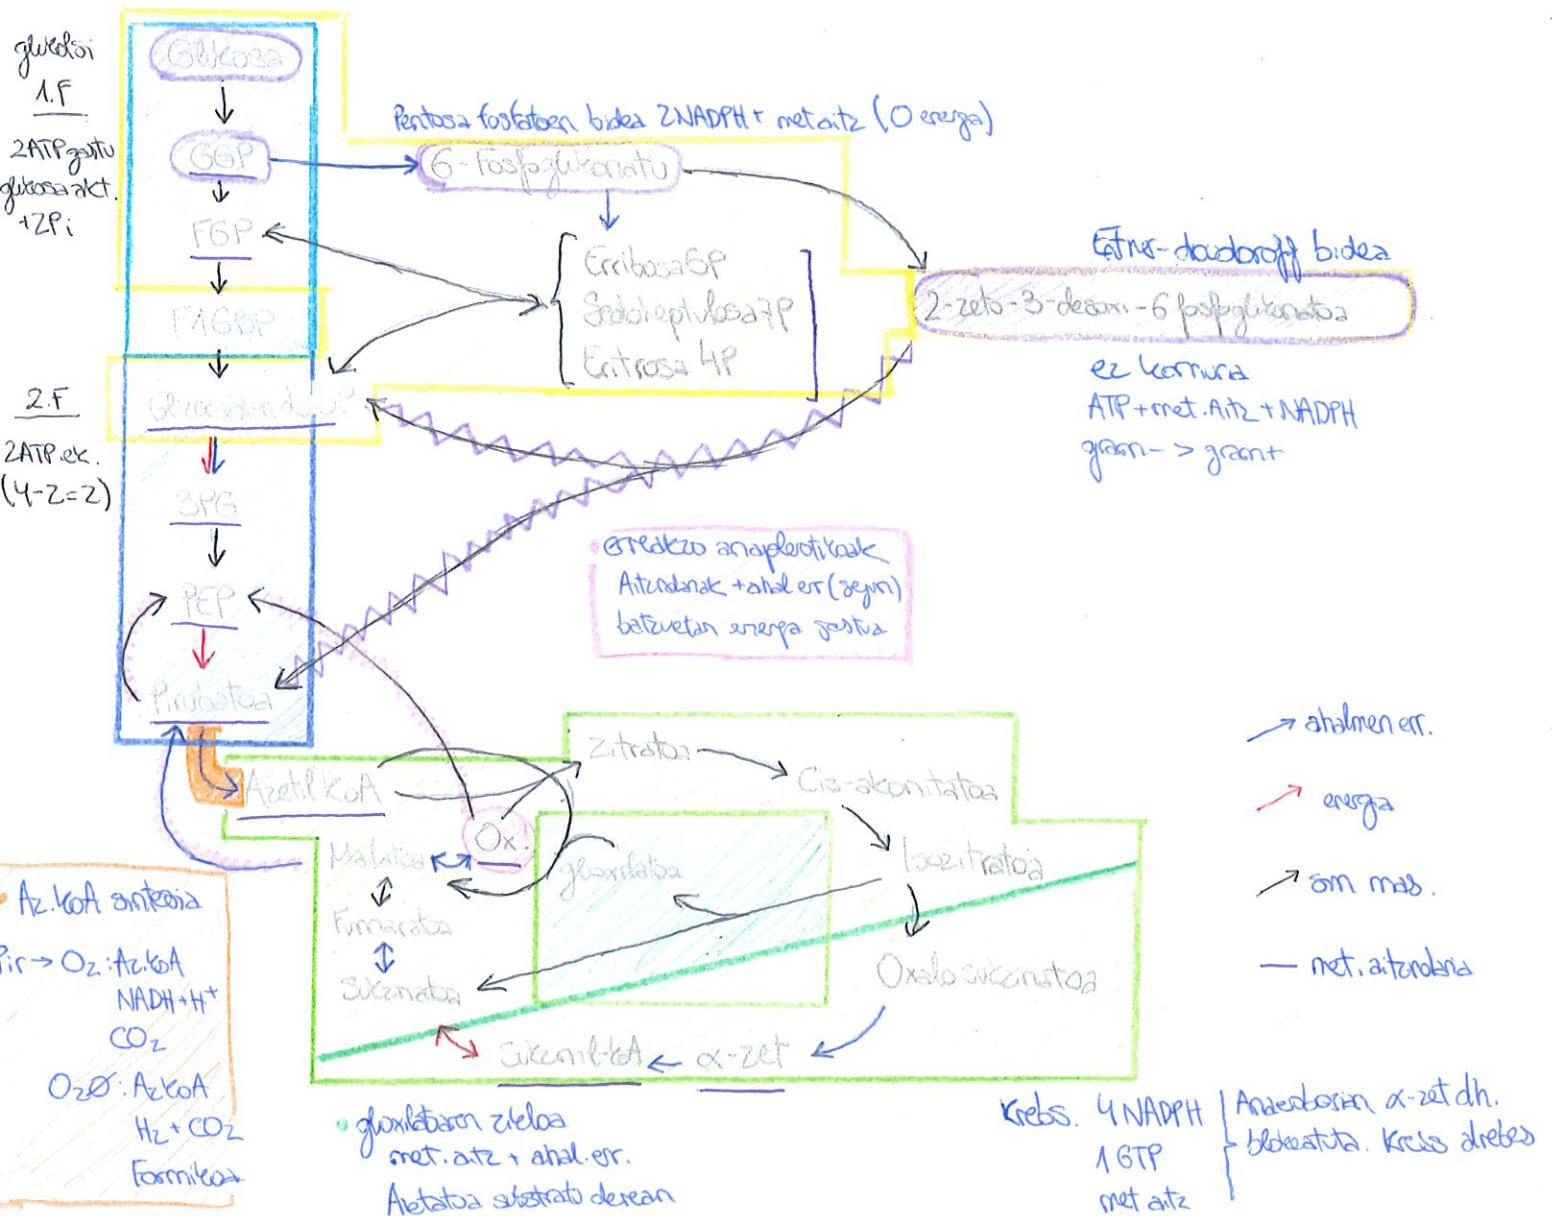 glukolisi
1.F
2ATP gastu
glukosa akt.
+2Pi
Glukosa
G6P
F6P
F16BP
2.F
2ATP ek.
(4-2=2)
3PG
PEP
Pirubatoa
Pentosa fosfatoen bidea 2NADPH + met aitz (0 energia)
6-Fosfoglukonatu
Erribosa5P
Sedoheptulosa7P
Eritrosa 4P
Entner-doudoroff bidea
2-zeto-3-desoxi-6 fosfoglukonatoa
ez komuna
ATP+met.Aitz+NADPH
gram- > gram+
erreakzio anaplerotikoak
Aitzindariak + ahal err (segun)
batzuetan energia gastua
ahalmen err.
energia
oin mas.
met. aitzindaria
Azetil KoA
Zitratoa
Cis-akonitatoa
Isozitratoa
Oxalosukzinatoa
α-zet
Sukzinil-KoA
Sukzinatoa
Fumaratoa
Malatoa
Ox.
glioxilatoa
Az.KoA sintesia
Pir → O2: Az.KoA
NADH+H+
CO2
O2Ø: Az KoA
H2 + CO2
Formikoa
glioxilatoaren zikloa
met. aitz + ahal. err.
Azetatoa substratu denean
Krebs. 4 NADPH
1 GTP
met aitz
Anaerobiosian α-zet dh.
blokeatuta. Krebs alrebes